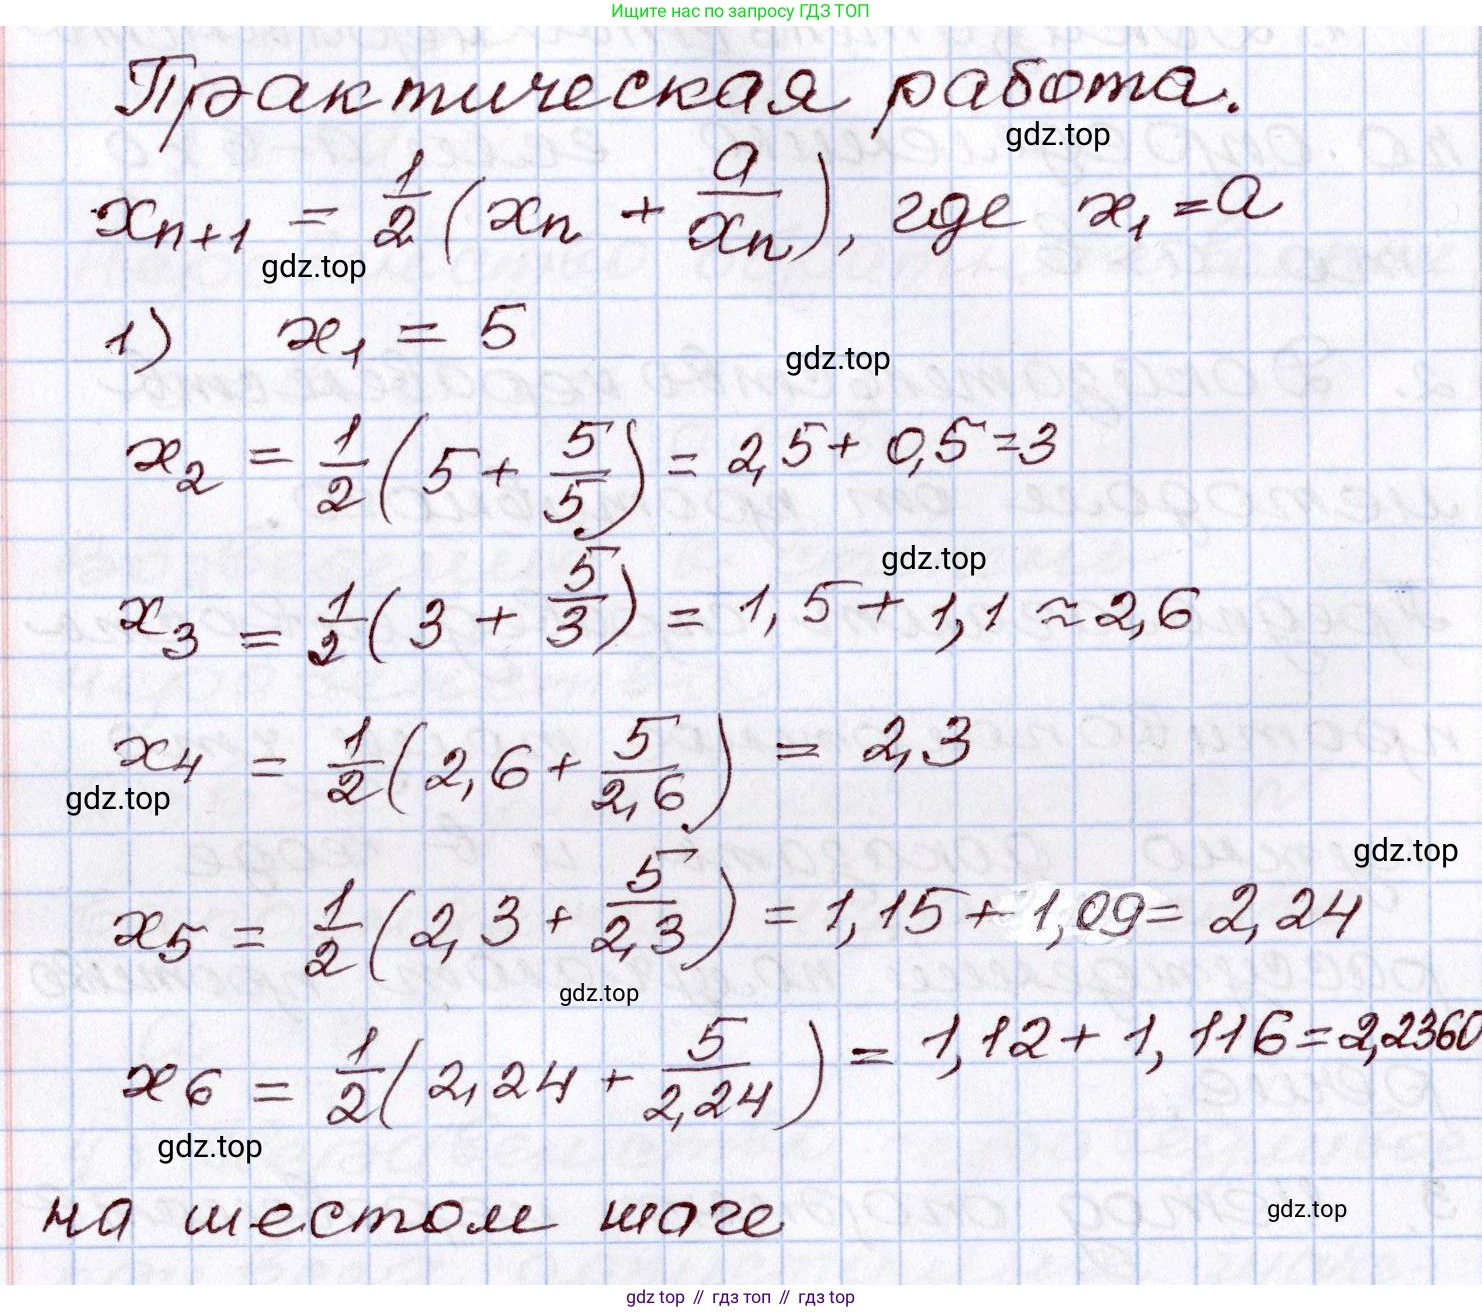 Ищите нас по запросу ГДЗ ТОП
Практическая работа.
gdz.top
xₙ₊₁ = 1/2 (xₙ + a/xₙ), где x₁ = a
gdz.top
1) x₁ = 5
gdz.top
x₂ = 1/2 (5 + 5/5) = 2,5 + 0,5 = 3
gdz.top
x₃ = 1/2 (3 + 5/3) = 1,5 + 1,1 ≈ 2,6
x₄ = 1/2 (2,6 + 5/2,6) = 2,3
gdz.top
gdz.top
x₅ = 1/2 (2,3 + 5/2,3) = 1,15 + 1,09 = 2,24
gdz.top
x₆ = 1/2 (2,24 + 5/2,24) = 1,12 + 1,116 = 2,2360
gdz.top
на шестом шаге
gdz.top
gdz.top // гдз топ // гдз.top